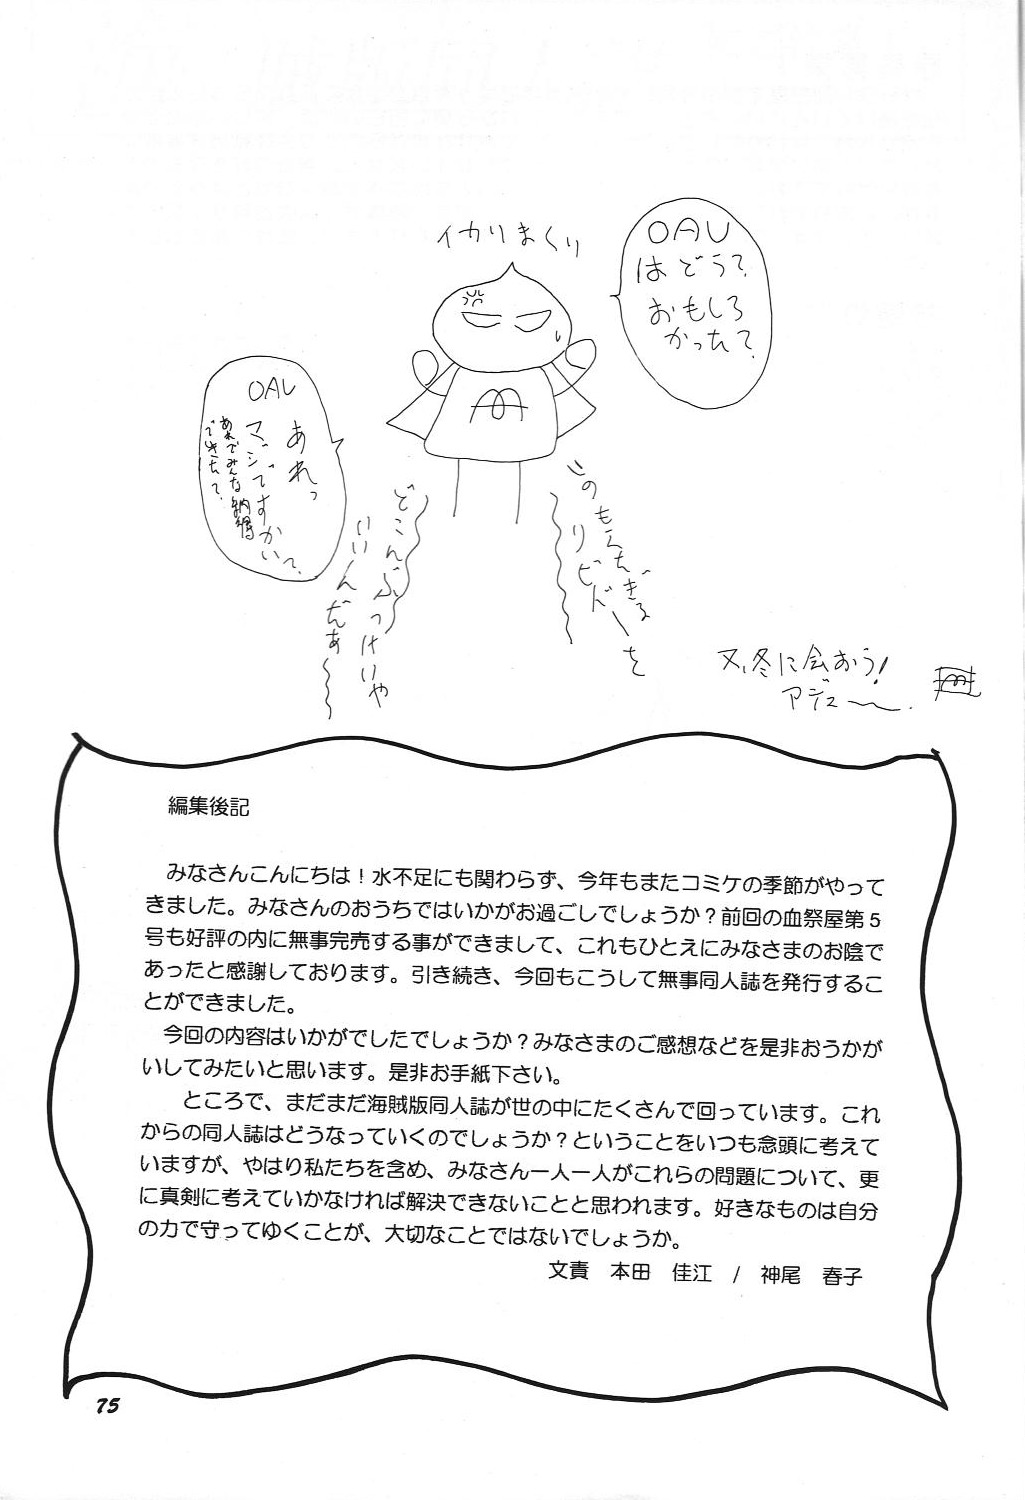 イカりまくり
OAU
はどう?
おもしろ
かった?
OAU
あれっ
マジですかい?
あれでみんな納得
できたって?
このもえたぎる
リビドーを
どこんぶっけいや
いいんだぁ〜〜
又、冬に会おう!
アデュー〜.
編集後記
みなさんこんにちは!水不足にも関わらず、今年もまたコミケの季節がやって
きました。みなさんのおうちではいかがお過ごしでしょうか?前回の血祭屋第5
号も好評の内に無事完売する事ができまして、これもひとえにみなさまのお陰で
あったと感謝しております。引き続き、今回もこうして無事同人誌を発行するこ
とができました。
今回の内容はいかがでしたでしょうか?みなさまのご感想などを是非おうかが
いしてみたいと思います。是非お手紙下さい。
ところで、まだまだ海賊版同人誌が世の中にたくさんで回っています。これ
からの同人誌はどうなっていくのでしょうか?ということをいつも念頭に考えて
いますが、やはり私たちを含め、みなさん一人一人がこれらの問題について、更
に真剣に考えていかなければ解決できないことと思われます。好きなものは自分
の力で守ってゆくことが、大切なことではないでしょうか。
文責 本田 佳江 / 神尾 春子
75